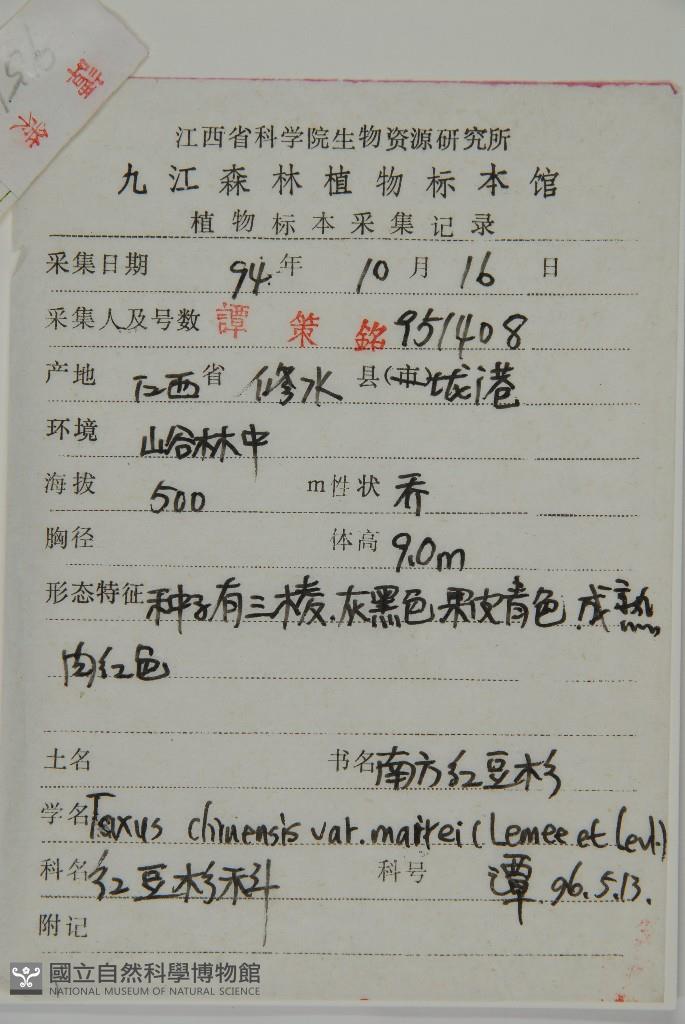 江西省科学院生物资源研究所
九江森林植物标本馆
植物标本采集记录
采集日期 94年 10月 16日
采集人及号数 譚策銘 951408
产地 江西省 修水 县(市)垅港
环境 山谷林中
海拔 500 m 性状 乔
胸径 体高 9.0m
形态特征 种子有三棱.灰黑色 果皮青色.成熟
肉红色
土名 书名 南方红豆杉
学名 Taxus chinensis var. mairei (Lemee et Levl.)
科名 红豆杉科 科号 譚 96.5.13.
附记
國立自然科學博物館
NATIONAL MUSEUM OF NATURAL SCIENCE